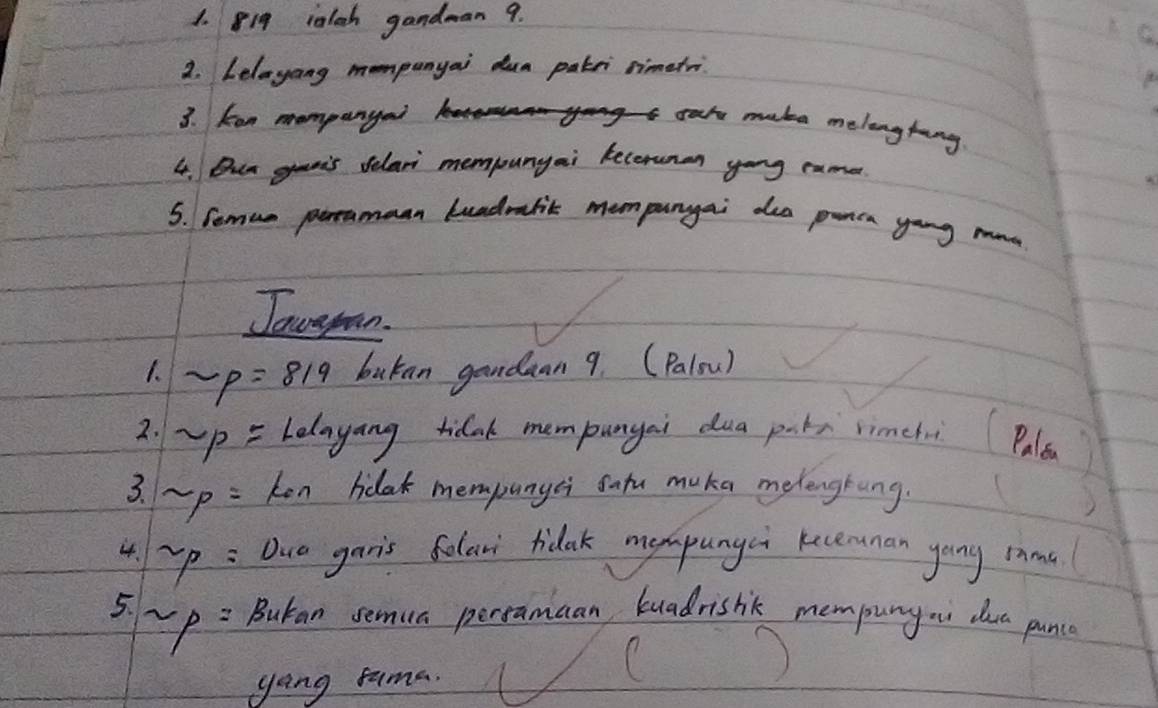 1. 819 ialah gandaan 9.
2. Lelayang mempunyai dua paksi simetri.
3. Kon mempunyai satu muka melengkung.
4. Dua garis selari mempunyai kecerunan yang sama.
5. Semua persamaan kuadratik mempunyai dua punca yang sama.
Jawapan.
1. ~p = 819 bukan gandaan 9. (Palsu)
2. ~p = Lelayang tidak mempunyai dua paksi simetri (Palsu)
3. ~p = kon tidak mempunyai satu muka melengkung. ( )
4. ~p = Dua garis selari tidak mempunyai kecerunan yang sama. ( )
5. ~p = Bukan semua persamaan kuadristik mempunyai dua punca
yang sama. ( )